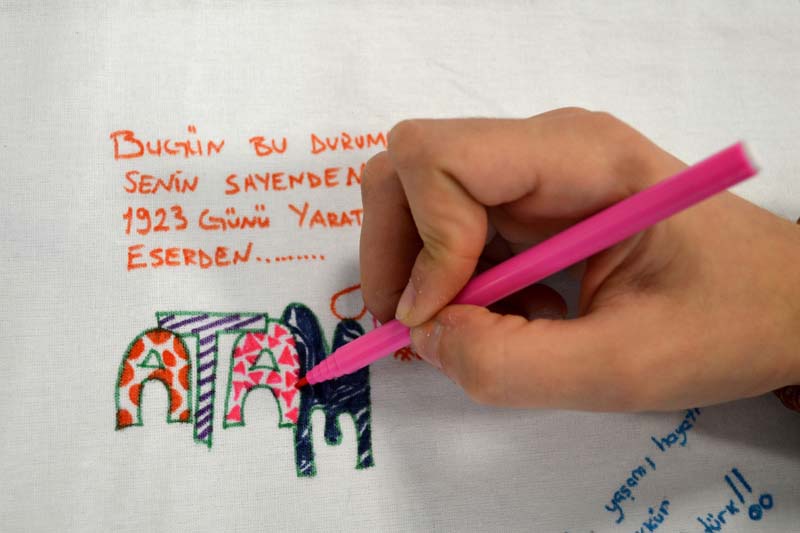 BUGÜN BU DURUM
SENİN SAYENDEN
1923 GÜNÜ YARAT
ESERDEN.........
ATAM
yaşamı hayat
!!